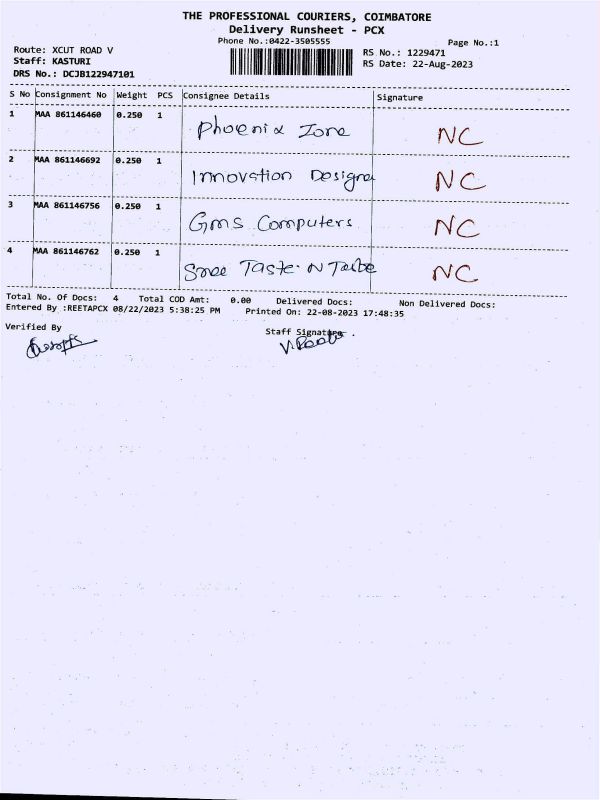 THE PROFESSIONAL COURIERS, COIMBATORE
Delivery Runsheet - PCX
Phone No.:0422-3505555 Page No.:1
Route: XCUT ROAD V RS No.: 1229471
Staff: KASTURI RS Date: 22-Aug-2023
DRS No.: DCJB122947101
S No Consignment No Weight PCS Consignee Details Signature
1 MAA 861146460 0.250 1 Phoenix Zone NC
2 MAA 861146692 0.250 1 Innovation Designer NC
3 MAA 861146756 0.250 1 Gms Computers NC
4 MAA 861146762 0.250 1 Sree Taste N NC
Total No. Of Docs: 4 Total COD Amt: 0.00 Delivered Docs: Non Delivered Docs:
Entered By :REETAPCX 08/22/2023 5:38:25 PM Printed On: 22-08-2023 17:48:35
Verified By Staff Signature